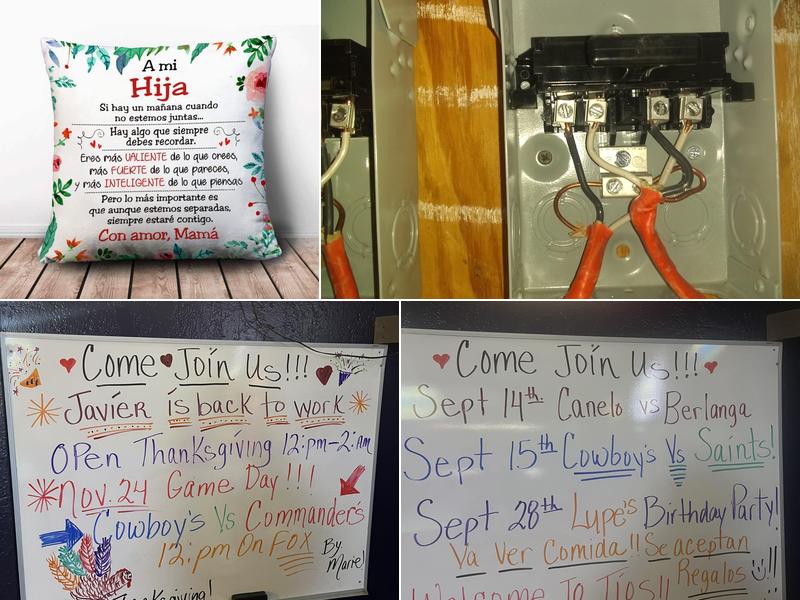 A mi
Hija
Si hay un mañana cuando
no estemos juntas...
Hay algo que siempre
debes recordar.
Eres más VALIENTE de lo que crees,
más FUERTE de lo que pareces,
y más INTELIGENTE de lo que piensas
Pero lo más importante es
que aunque estemos separadas,
siempre estaré contigo.
Con amor, Mamá
Come Join Us!!!
Javier is back to work
OPen Thanksgiving 12:pm-2:Am
Nov. 24 Game Day!!!
Cowboy's Vs Commander's
12:pm On FOX
By:
Marie!
Thanksgiving!
Come Join Us!!!
Sept 14th Canelo vs Berlanga
Sept 15th Cowboy's Vs Saints!
Sept 28th Lupe's Birthday Party!
Ya Ver Comida!! Se aceptan
Regalos !!
Welcome To Tios!!